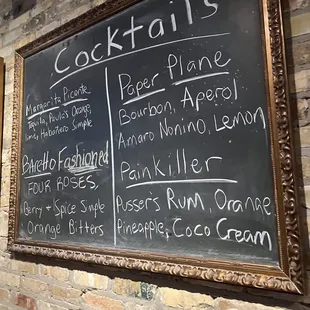 Cocktails
Margarita Picante
Tequila, Paula's Orange,
Lime, Habañero Simple
Fashioned
FOUR ROSES,
Berry + Spice Simple
Orange Bitters
Paper Plane
Bourbon, Aperol
Amaro Nonino, Lemon
Painkiller
Pusser's Rum, Orange
Pineapple, Coco Cream